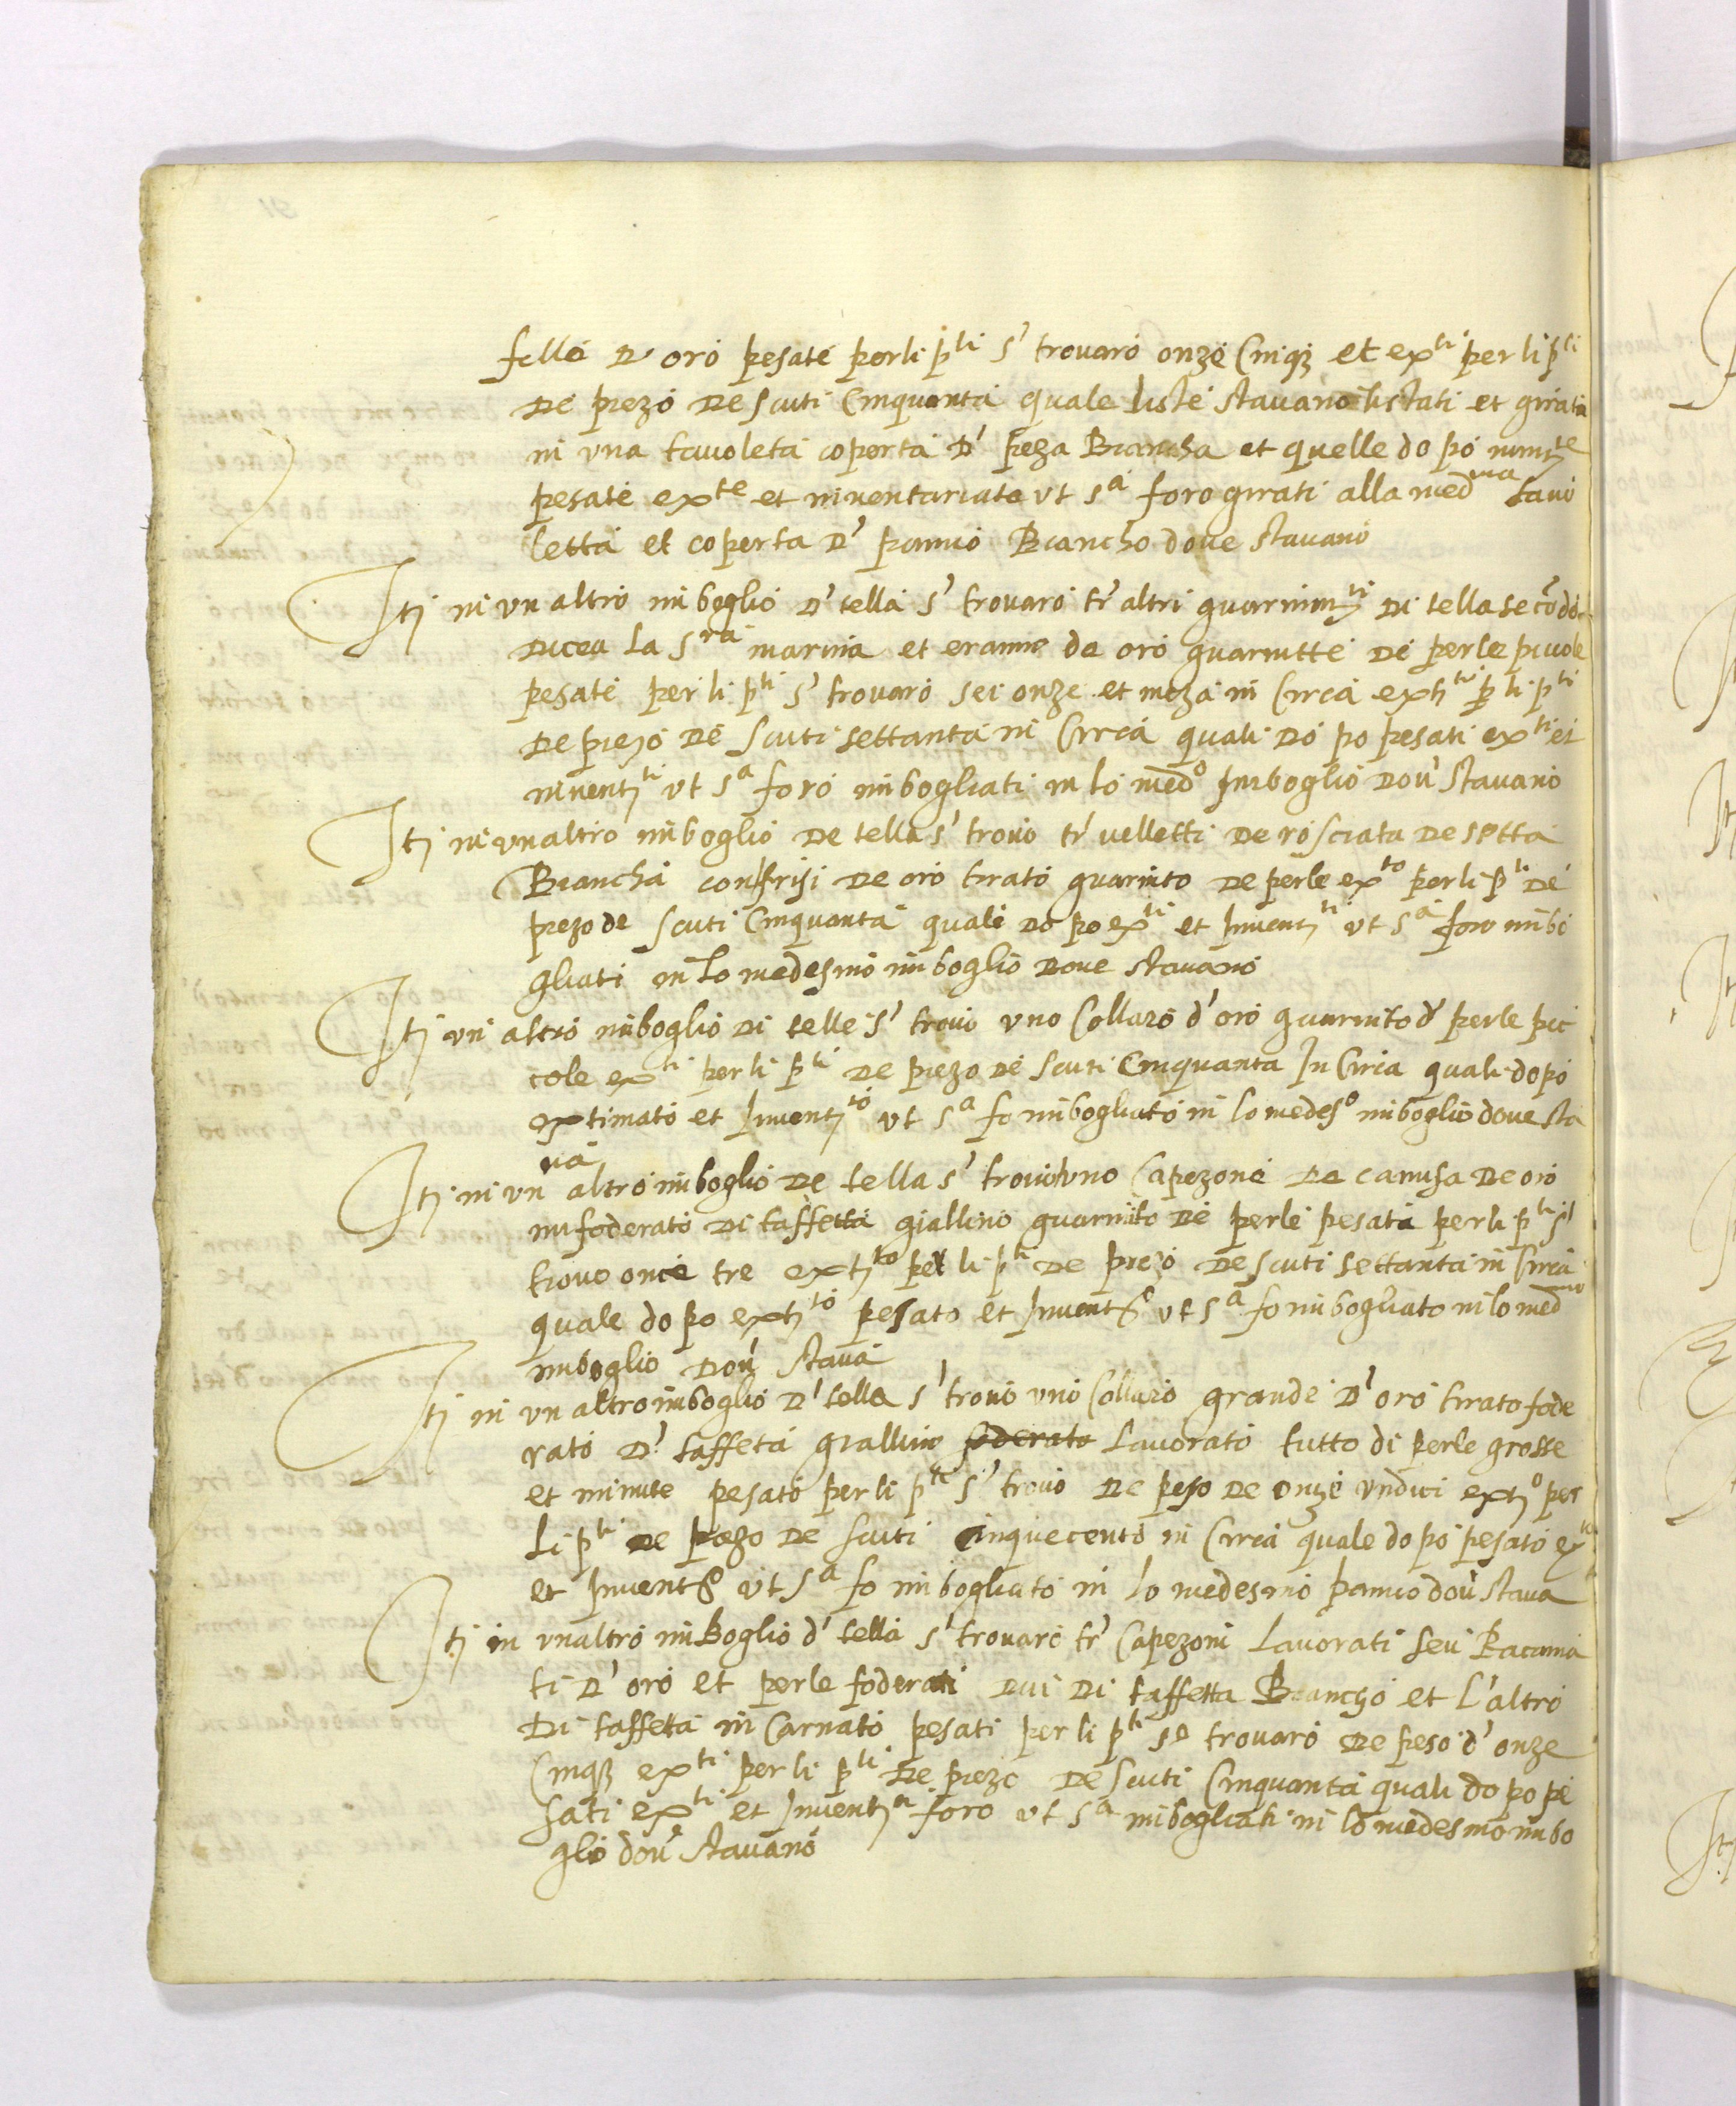 felle D' oro pesate per li p^ti s' trovaro onze Cinq3 et ex^ti per li p^ti
De prezo De scuti Cinquanta quale liste stavano listati et girati
in una tavoleta coperta D' peza Biancha et quelle do po
pesate ex^te et inventariate ut s^a foro girati alla med^ma tavo
letta et coperta D' panno Biancho dove stavano
Itj in un altro imboglio D' tella s' trovaro tr' altri guarnim^ti Di tella secōdo
Dicea la S^ra marina et eranno de oro guarnitte De perle picole
pesate per li p^ti s' trovaro sei onze et meza in Circa ext^ti p li p^ti
De prezo De Scuti settanta in Circa quali Do po pesati ex^ti et
inventj^ti ut s^a foro imbogliati in lo med^o Imboglio Dov' stavano
Itj in un altro imboglio De tella s' trovo tr' velletti De rosciata De setta
Biancha con frisi De oro tirato guarnito De perle ex^to per li p^ti De
prezo de scuti Cinquanta quale Do po ex^ti et Inventj^ti ut s^a foro imbo
gliati in lo medesmo imboglio Dove stavano
Itj un altro imboglio Di telle s' trovo uno Collaro d'oro guarnito d' perle pic
cole ex^ti per li p^ti De prezo De scuti Cinquanta In Circa quale dopo
extimato et Inventj^to ut s^a fo imbogliato in lo medes^o imboglio dove sta
va
Itj in un altro imboglio De tella s' trovo uno Capezone De camisa De oro
infoderato Di taffetta giallino guarnito De perle pesata per li p^ti s'
trovo once tre extj^to per li p^ti De prezo De scuti settanta in Circa
quale do po extj^to pesato et Invent^o ut s^a fo imbogliato in lo med^mo
imboglio Dov' stava
Itj in un altro imboglio D' tella s' trovo uno Collaro grande D'oro tirato fode
rato D' taffeta giallino foderato Lavorato tutto di perle grosse
et minute pesato per li p^ti s' trovo De peso De onze undici extj^o per
li p^ti De prezo De scuti Cinquecento in Circa quale do po pesato ex^to
et Invent^o ut s^a fo imbogliato in lo medesmo panno dov' stava
Itj in un altro imboglio d' tella s' trovaro tr' Capezoni Lavorati seu Racama
ti D'oro et perle foderati Dui Di taffetta Biancho et L'altro
Di taffetta in Carnato pesati per li p^ti se trovaro De peso d'onze
Cinq3 ex^ti per li p^ti De prezo De Scuti Cinquanta quali do po pe
sati ex^ti et Inventj^ti foro ut s^a imbogliati in lo medesmo imbo
glio dov' stavano